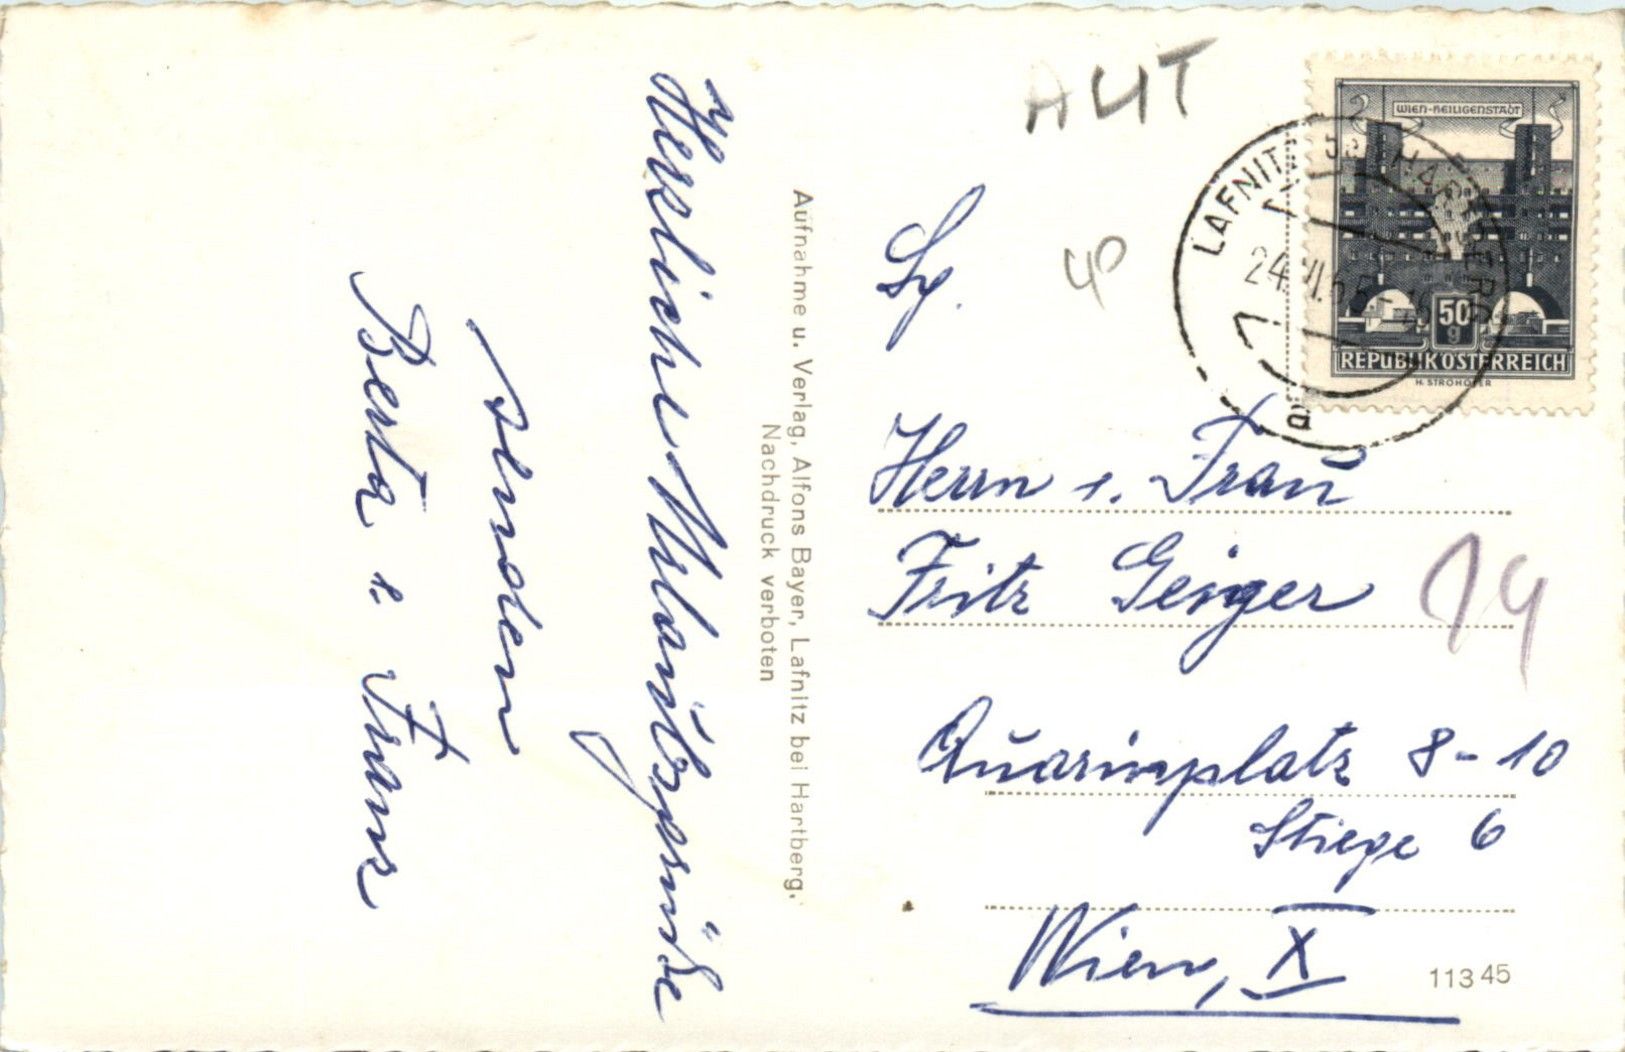 Herzliche Urlaubsgrüße
senden
Berta u. Franz
Aufnahme u. Verlag, Alfons Bayer, Lafnitz bei Hartberg.
Nachdruck verboten
AUT
WIEN-HEILIGENSTADT
50
g
REPUBLIK ÖSTERREICH
H. STROHOFER
LAFNITZ
HARTBERG
a
Herrn u. Frau
Fritz Geiger
Quarinplatz 8-10
Stiege 6
Wien, X
113 45